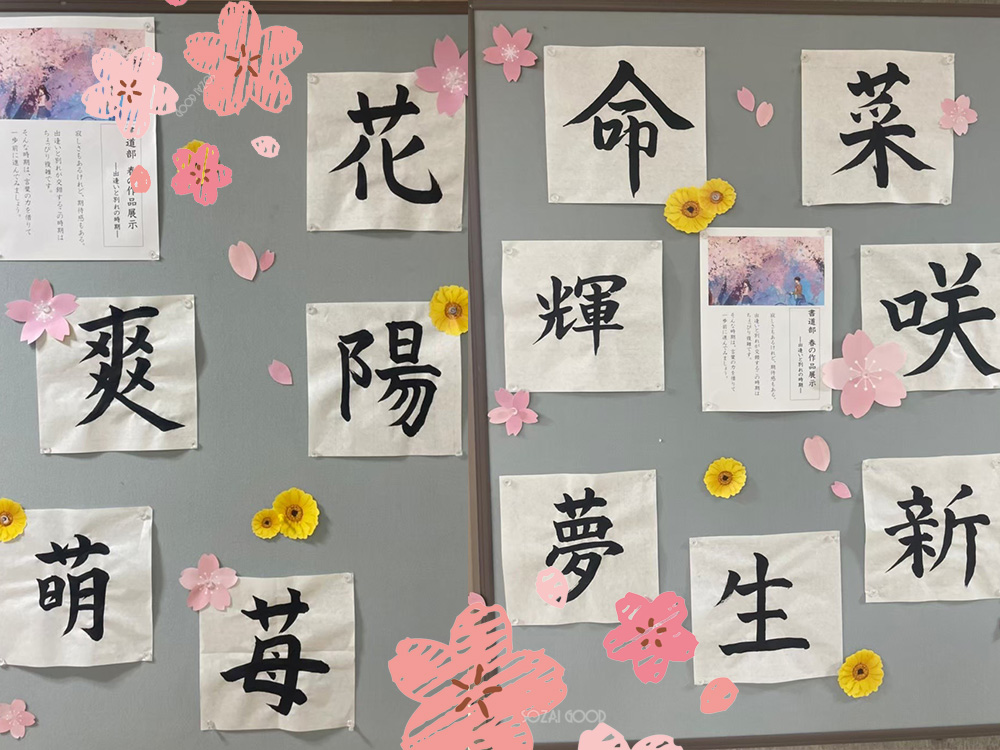 書道部 春の作品展示
―出逢いと別れの時期―
寂しさもあるけれど、期待感もある。
出逢いと別れが交錯する、この時期は
ちょっぴり複雑です。
そんな時期は、言葉の力を借りて
一歩前に進んでみましょう。
花
爽
陽
萌
苺
命
菜
輝
書道部 春の作品展示
―出逢いと別れの時期―
寂しさもあるけれど、期待感もある。
出逢いと別れが交錯する、この時期は
ちょっぴり複雑です。
そんな時期は、言葉の力を借りて
一歩前に進んでみましょう。
咲
夢
生
新
SOZAI GOOD